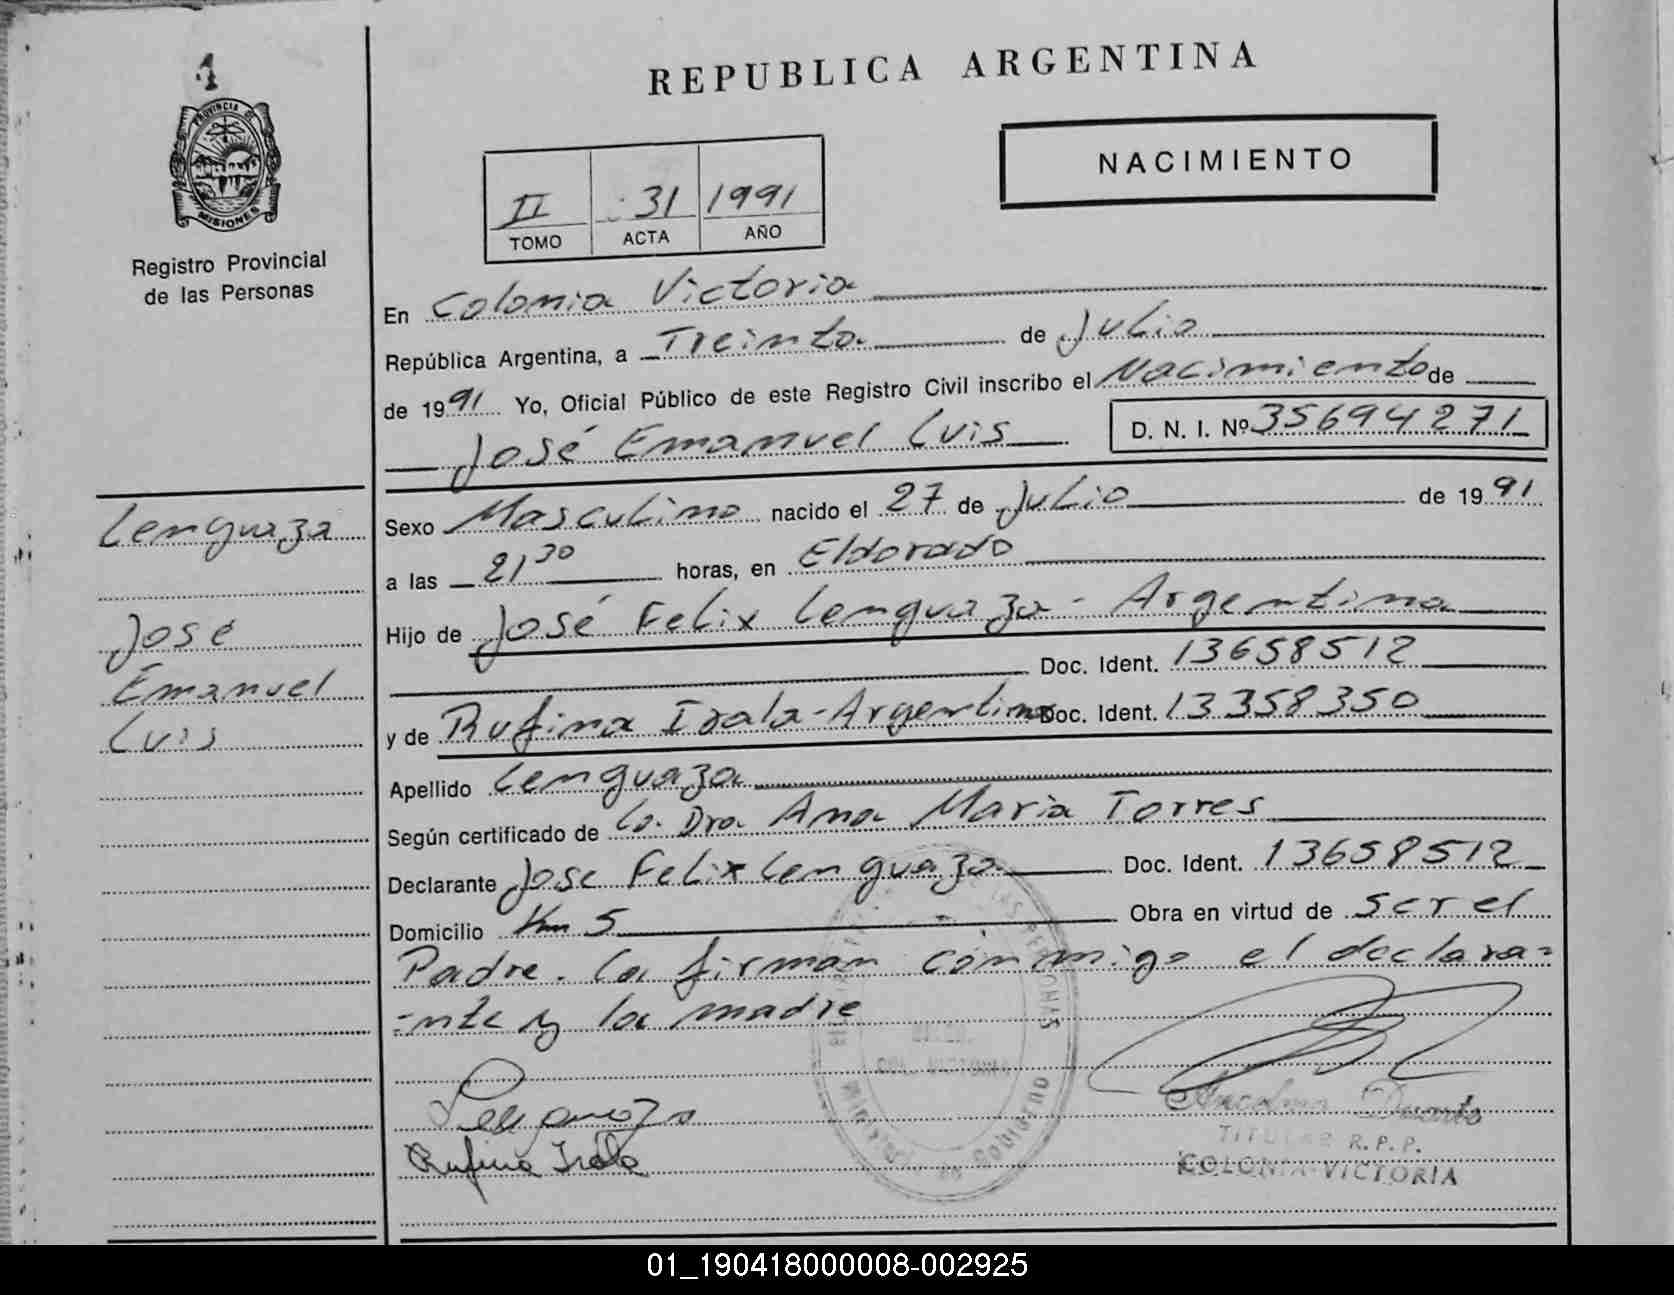 1
PROVINCIA DE
MISIONES
Registro Provincial
de las Personas
REPUBLICA ARGENTINA
NACIMIENTO
II 31 1991
TOMO ACTA AÑO
En Colonia Victoria
República Argentina, a Treinta de Julio
de 1991 Yo, Oficial Público de este Registro Civil inscribo el Nacimiento de
José Emanuel Luis D. N. I. Nº 35694271
Lenguaza
José
Emanuel
Luis
Sexo Masculino nacido el 27 de Julio de 1991
a las 21 30 horas, en Eldorado
Hijo de José Felix Lenguaza - Argentina
Doc. Ident. 13658512
y de Rufina Irala - Argentina Doc. Ident. 13358350
Apellido Lenguaza
Según certificado de La Dra Ana Maria Torres
Declarante Jose Felix Lenguaza Doc. Ident. 13658512
Domicilio Km 5 Obra en virtud de ser el
Padre. La firman conmigo el declara=
=nte y la madre
Lenguaza
Rufina Irala
DE LAS PERSONAS
COL. VICTORIA
Duarte
TITULAR R.P.P.
COLONIA VICTORIA
01_190418000008-002925